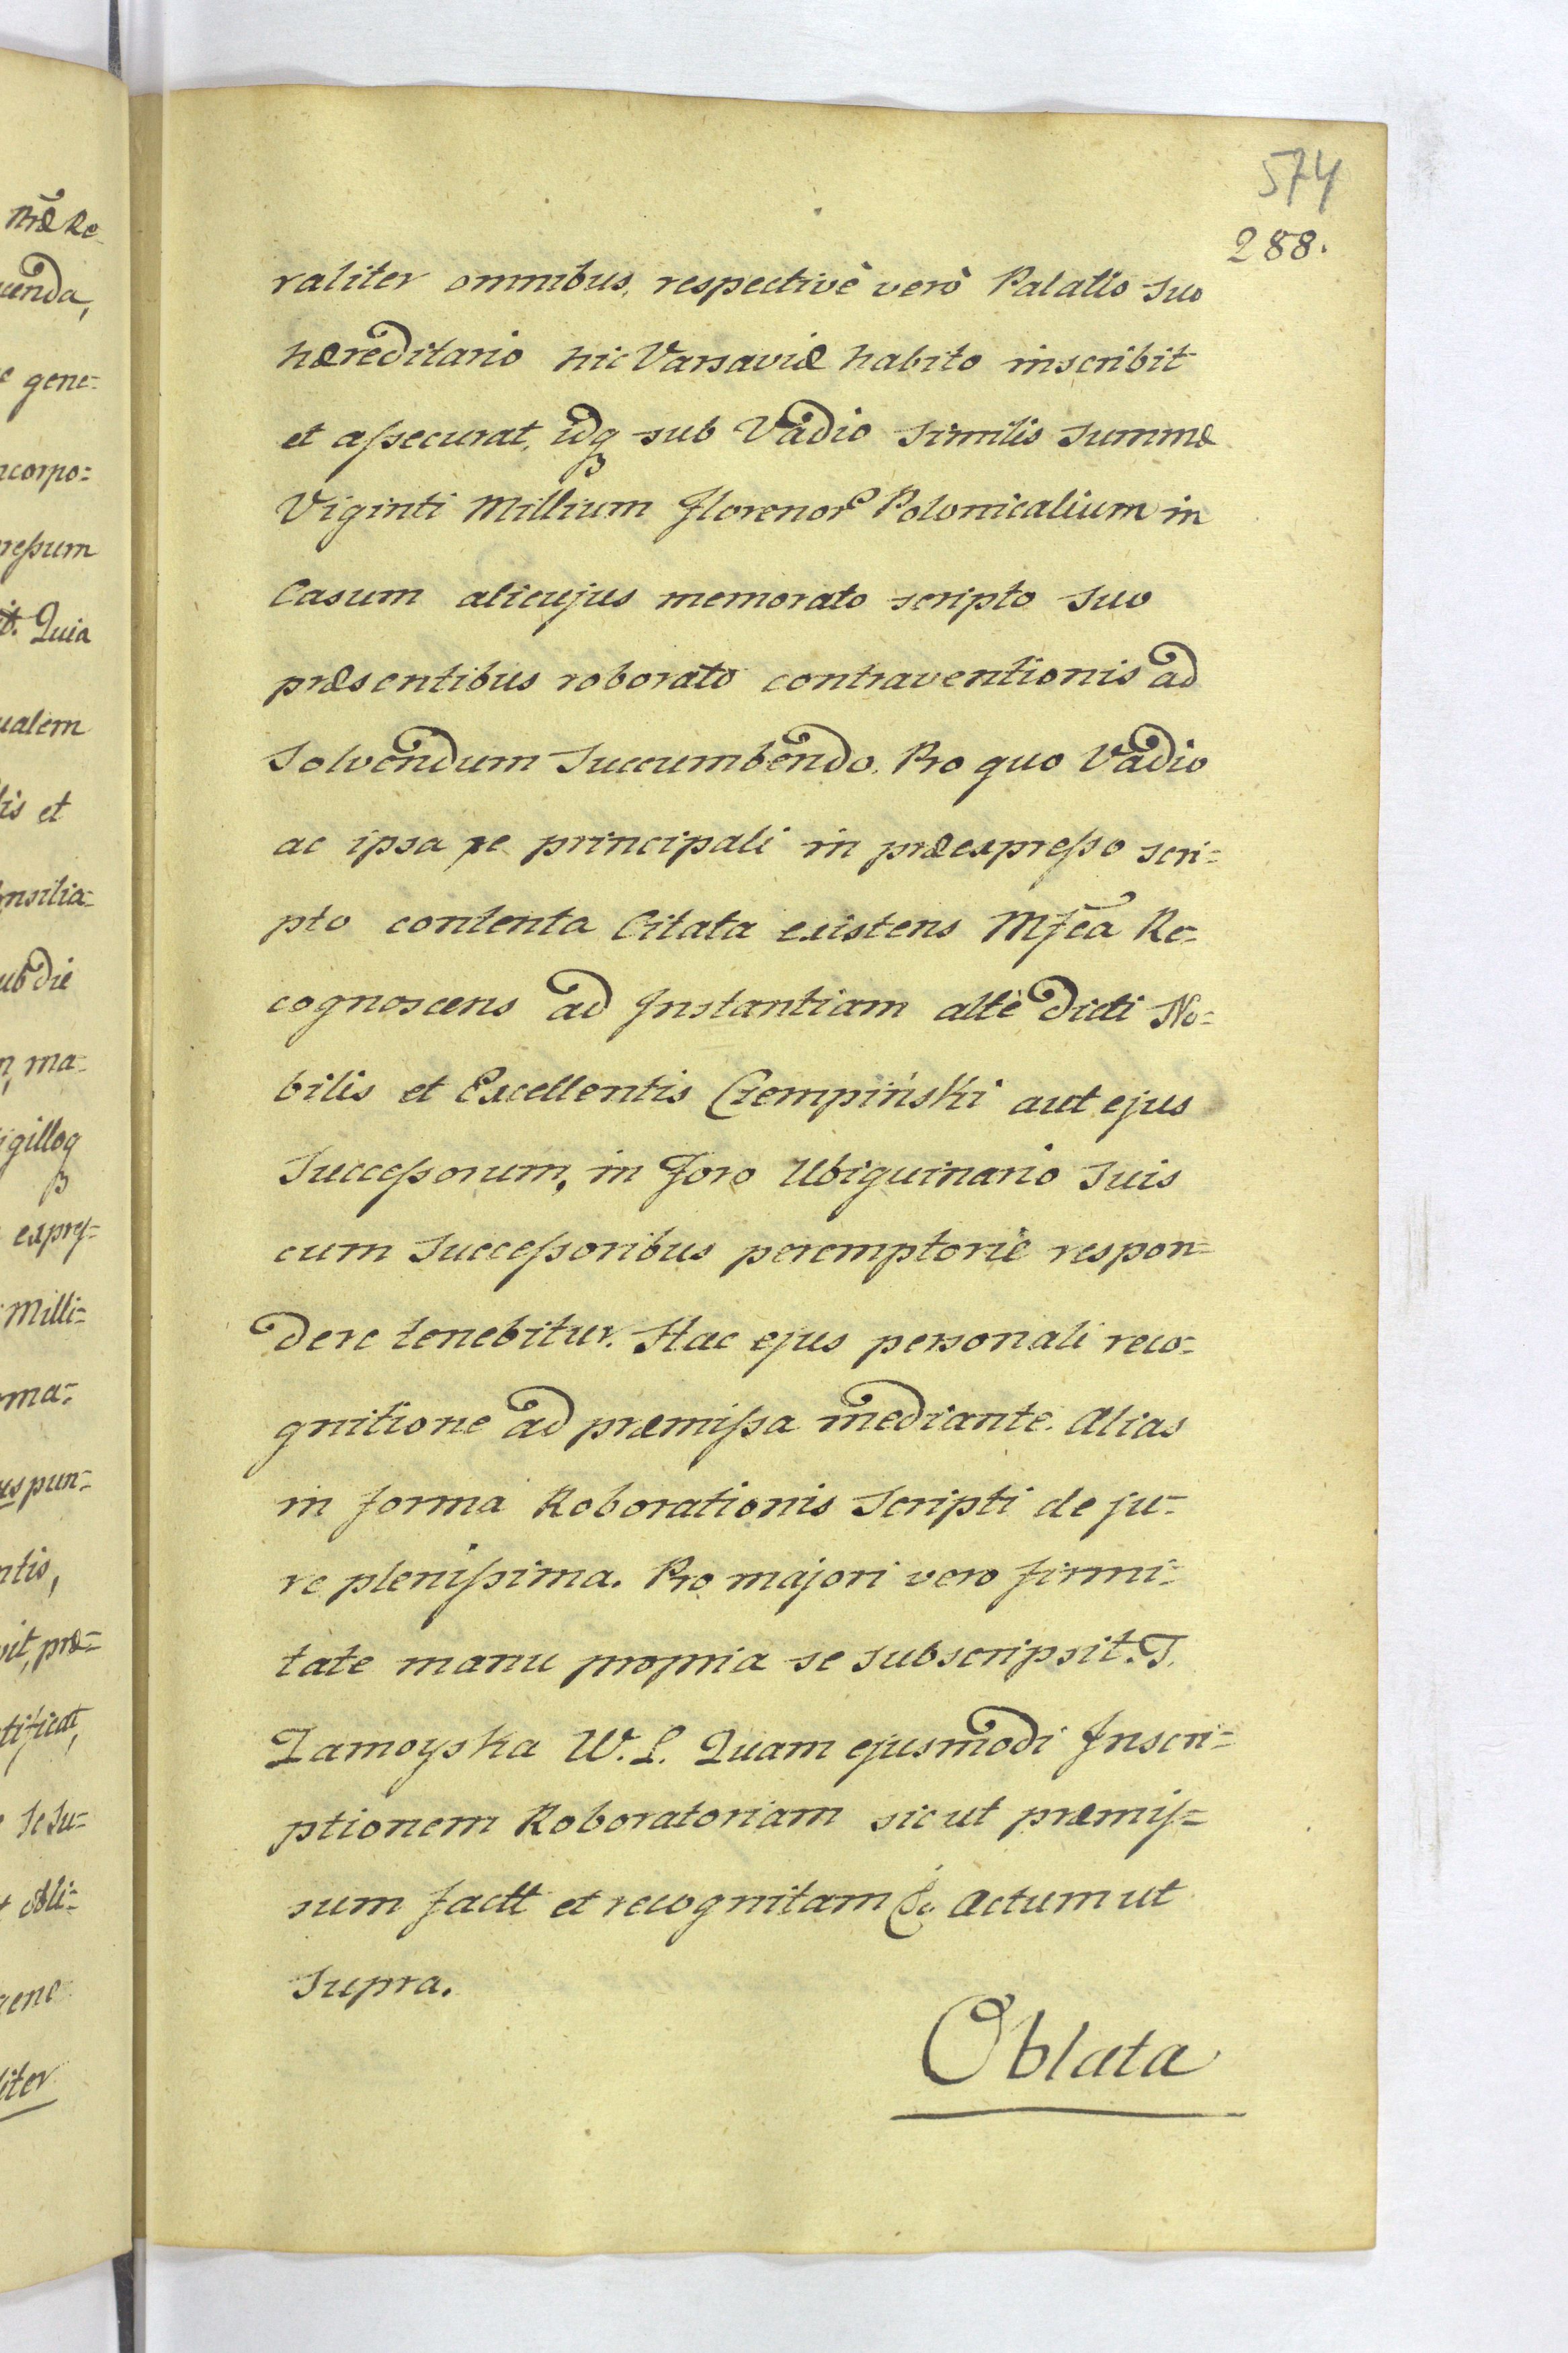 574
288.
raliter omnibus, respectivè verò Palatio suo
hæreditario hic Varsaviæ habito inscribit
et assecurat, idq sub Vadio similis summæ
Viginti Millium florenor Polonicalium in
Casum alicujus memorato scripto suo
præsentibus roborato contraventionis ad
solvendum succumbendo. Pro quo Vadio
ac ipsa re principali in præexpresso scri=
pto contenta Citata existens Mfca Re=
cognoscens ad Instantiam altè dicti No=
bilis et Excellentis Czempiński aut ejus
Successorum, in foro Ubiquinario suis
cum successoribus peremptoriè respon=
dere tenebitur. Hac ejus personali reco=
gnitione ad præmissa mediante. Alias
in forma Roborationis Scripti de ju=
re plenissima. Pro majori vero firmi=
tate manu propria se subscripsit. T.
Zamoyska W. L. Quam ejusmodi Inscri=
ptionem Roboratoriam sicut præmis=
sum factt et recognitam &c. Actum ut
supra.
Oblata